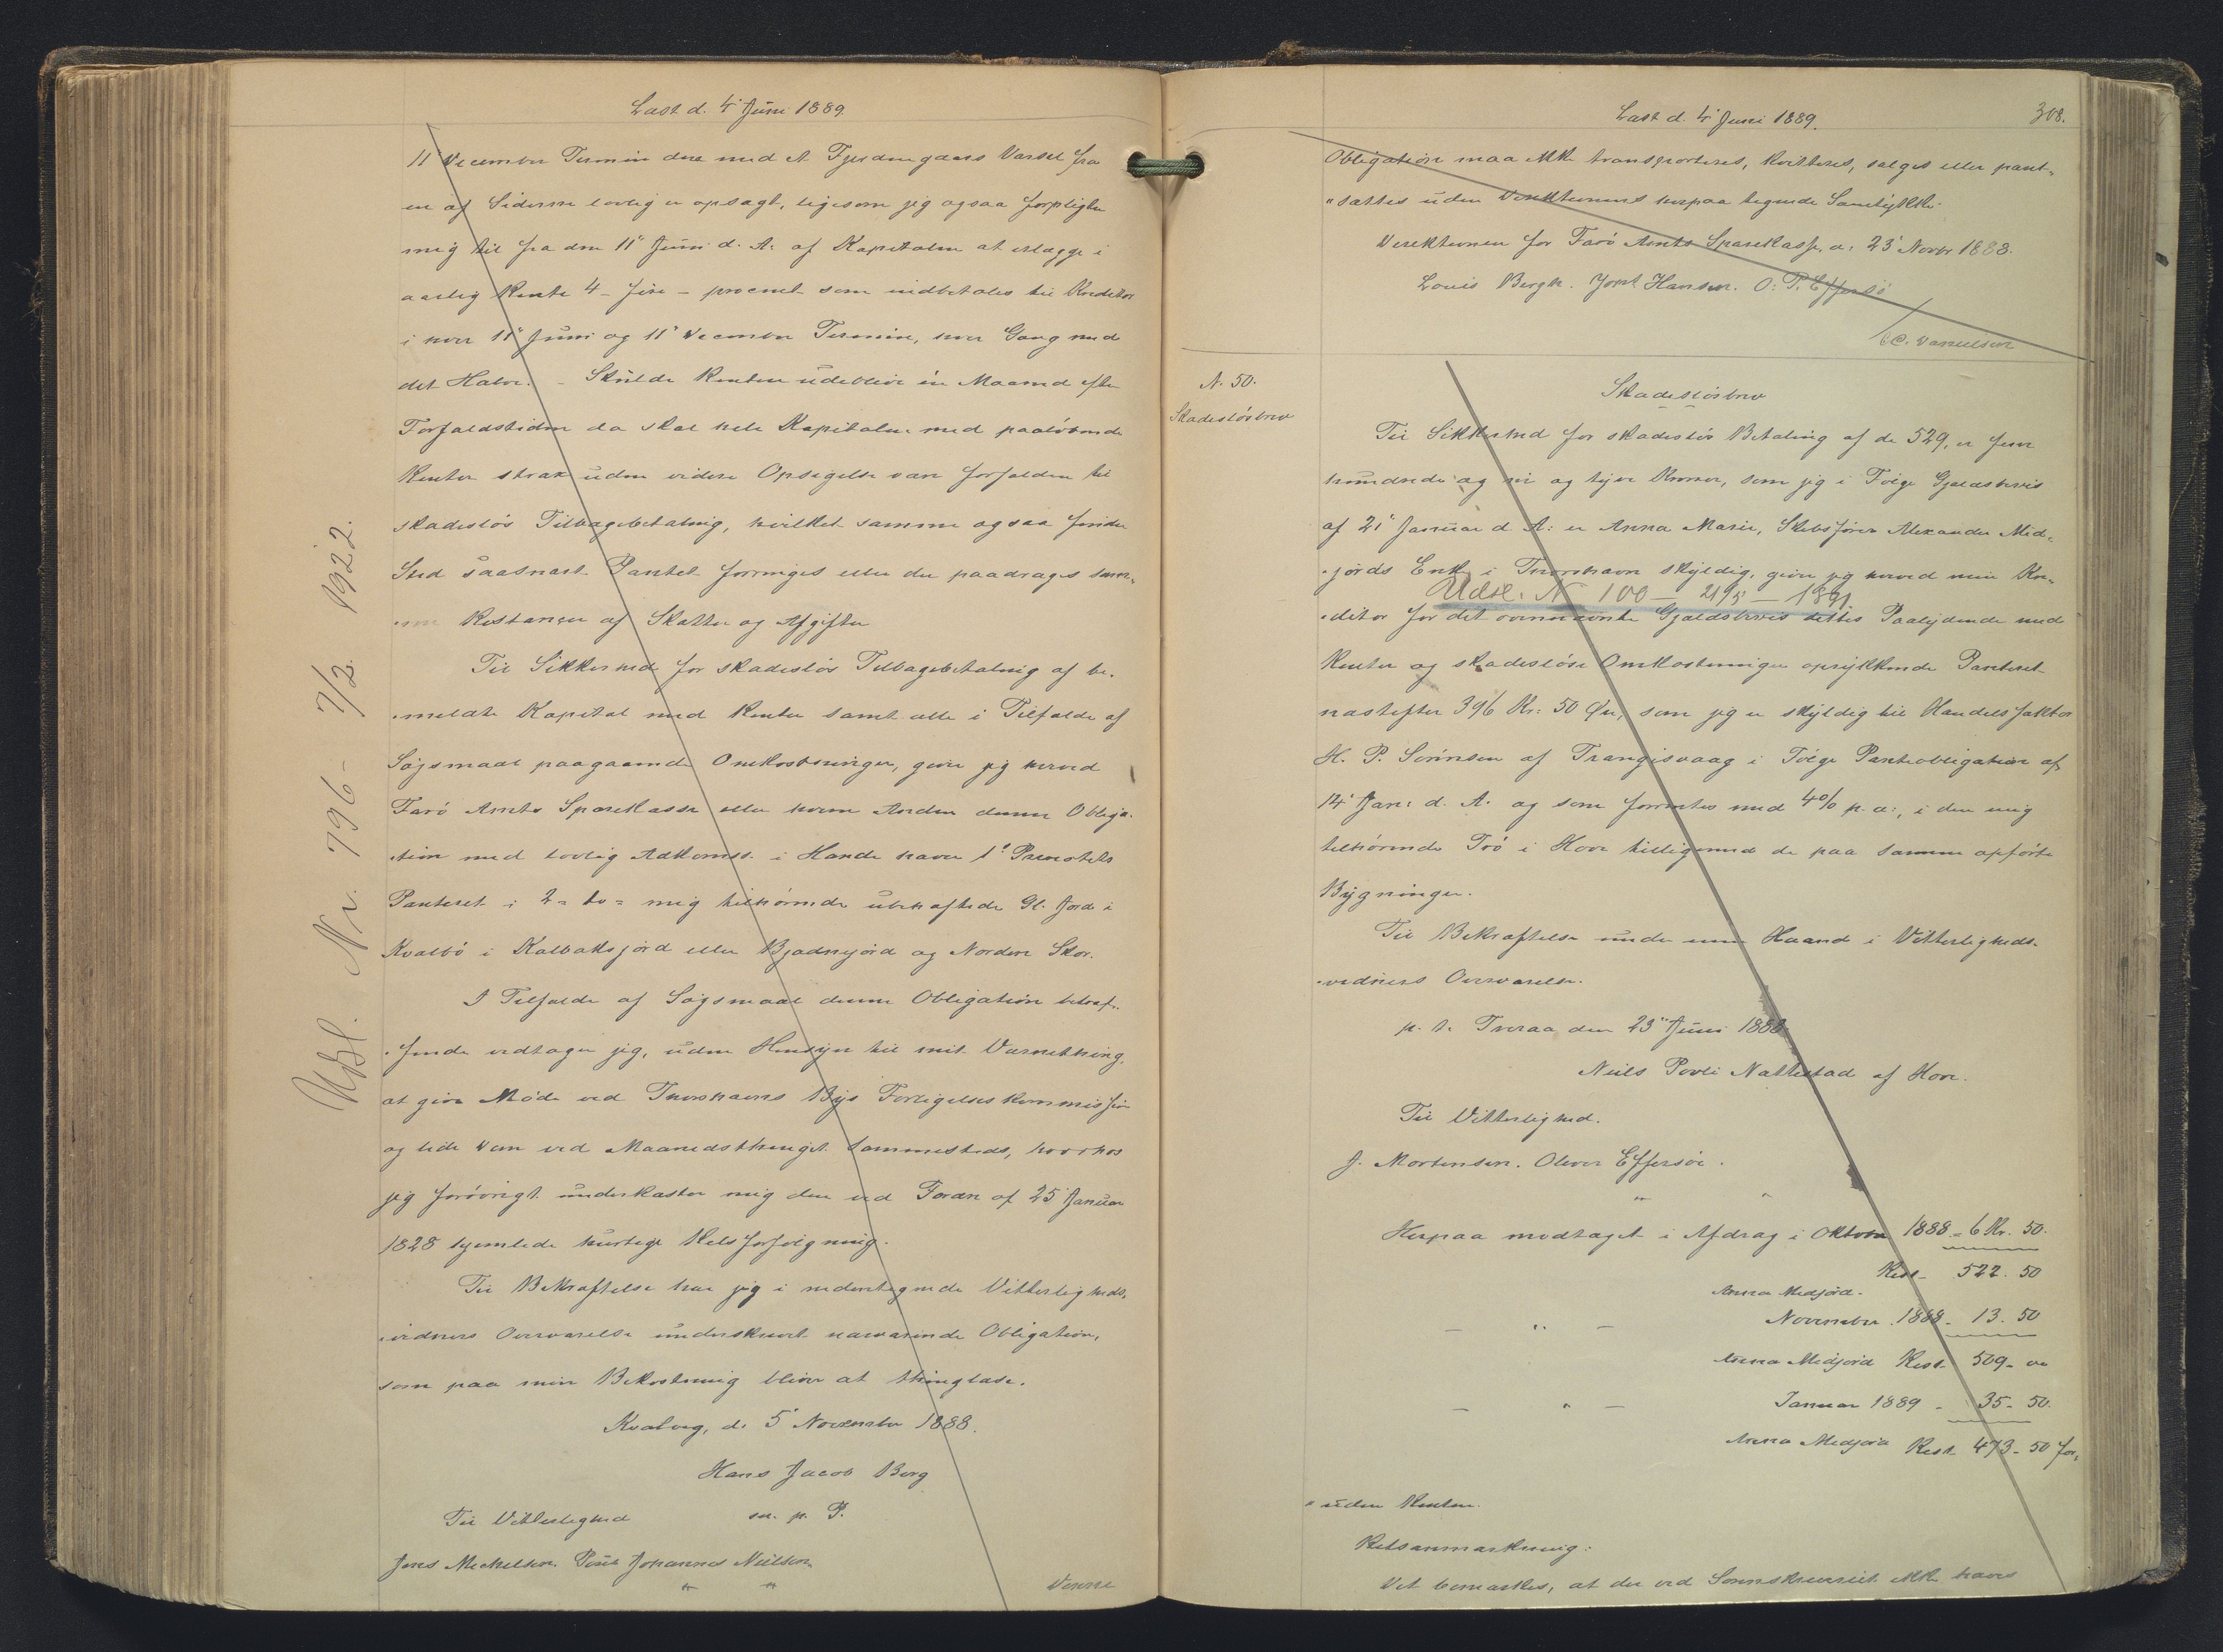 Læst d. 4' Juni 1889.
11' December Termin den med et Fjerdingaars Varsel fra
en af Siderne lovlig er opsagt, ligesom jeg ogsaa forpligter
mig til fra den 11' Juni d. A. af Kapitalen at erlægge i
aarlig Rente 4 - fire - procent som indbetales til Kreditor
i hver 11' Juni og 11' December Termin, hver Gang med
det Halve. - Skulde Renten udeblive én Maaned efter
Forfaldstiden da skal hele Kapitalen med paaløbende
Renter strax uden videre Opsigelse være forfalden til
skadesløs Tilbagebetaling, hvilket samme ogsaa finder
Sted saasnart Pantet forringes eller der paadrages samme
Restancer af Skatter og Afgifter
Til Sikkerhed for skadesløs Tilbagebetaling af be-
-meldte Kapital med Renter samt alle i Tilfælde af
Søgsmaal paagaaende Omkostninger, giver jeg herved
Færø Amts Sparekasse eller hvem Anden denne Obliga-
-tion med lovlig Adkomst i Hænde haver 1' Prioritets
Panteret i 2 = to = mig tilhørende ubehæftede Gl. Jord i
Kvalbø i Kalbaksfjord eller Bjadnefjord og Norden Skor.
I Tilfælde af Søgsmaal denne Obligation betræf-
-fende vedtager jeg, uden Hensyn til mit Værnething,
at give Møde ved Thorshavns Bys Forligelseskommission
og lide Dom ved Maanedsthinget sammesteds, hvorhos
jeg forøvrigt underkaster mig den ved Fordn af 25' Januar
1828 hjemlede hurtige Retsforfølgning.
Til Bekræftelse har jeg i nedentegnede Vitterligheds-
-vidners Overværelse underskrevet nærværende Obligation,
som paa min Bekostning bliver at thinglæse.
Kvalvig, d. 5' November 1888.
Hans Jacob Berg
m. p. P.
Til Vitterlighed
Jens Meckelsen. Poul Johannes Nielsen
" "
Denne
Udsl. Nr. 796 - 7/2 1922.
Læst d. 4' Juni 1889.
308.
Obligation maa ikke transporteres, kvitteres, sælges eller pant-
"sættes uden Direktionens herpaa tegnede Samtykke.
Direktionen for Færø Amts Sparekasse, d. 23' Novbr 1888.
Louis Bergh. Joen Hansen. O: P. Effersø
/C. Danielsen
N. 50.
Skadesløsbrev
Skadesløsbrev
Til Sikkerhed for skadesløs Betaling af de 529, er fem
hundrede og ni og tyve Kroner, som jeg i Følge Gjældsbevis
af 21' Januar d A: er Anna Marie, Skibsfører Alexander Mid-
-jords Enke i Thorshavn skyldig, giver jeg herved min Kre-
Udsl. N 100 - 21/5 - 1891.
-ditor for det ovennævnte Gjældsbevis dettes Paalydende med
Renter og skadesløse Omkostninger oprykkende Panteret
næstefter 396 Kr: 50 Øre, som jeg er skyldig til Handelsfaktor
H. P. Sørensen af Trangisvaag i Følge Panteobligation af
14' Jan: d. A. og som forrentes med 4% p. a:, i den mig
tilhørende Trø i Hove tilligemed de paa samme opførte
Bygninger.
Til Bekræftelse under min Haand i Vitterligheds-
-vidners Overværelse.
p. t. Tveraa den 23' Juni 1888
Niels Povli Nattestad af Hove.
Til Vitterlighed.
J. Mortensen. Oliver Effersøe.
" "
Herpaa modtaget i Afdrag i Oktober 1888 = 6 Kr. 50.
Rest - 522. 50
Anna Midjord.
— " — November 1888 - 13. 50
Anna Midjord Rest 509 - oo
— " — Januar 1889 - 35 - 50.
Anna Midjord Rest 473 - 50 for-
"uden Renten.
Retsanmærkning:
Det bemærkes, at der ved Sønnskrevet ikke haves